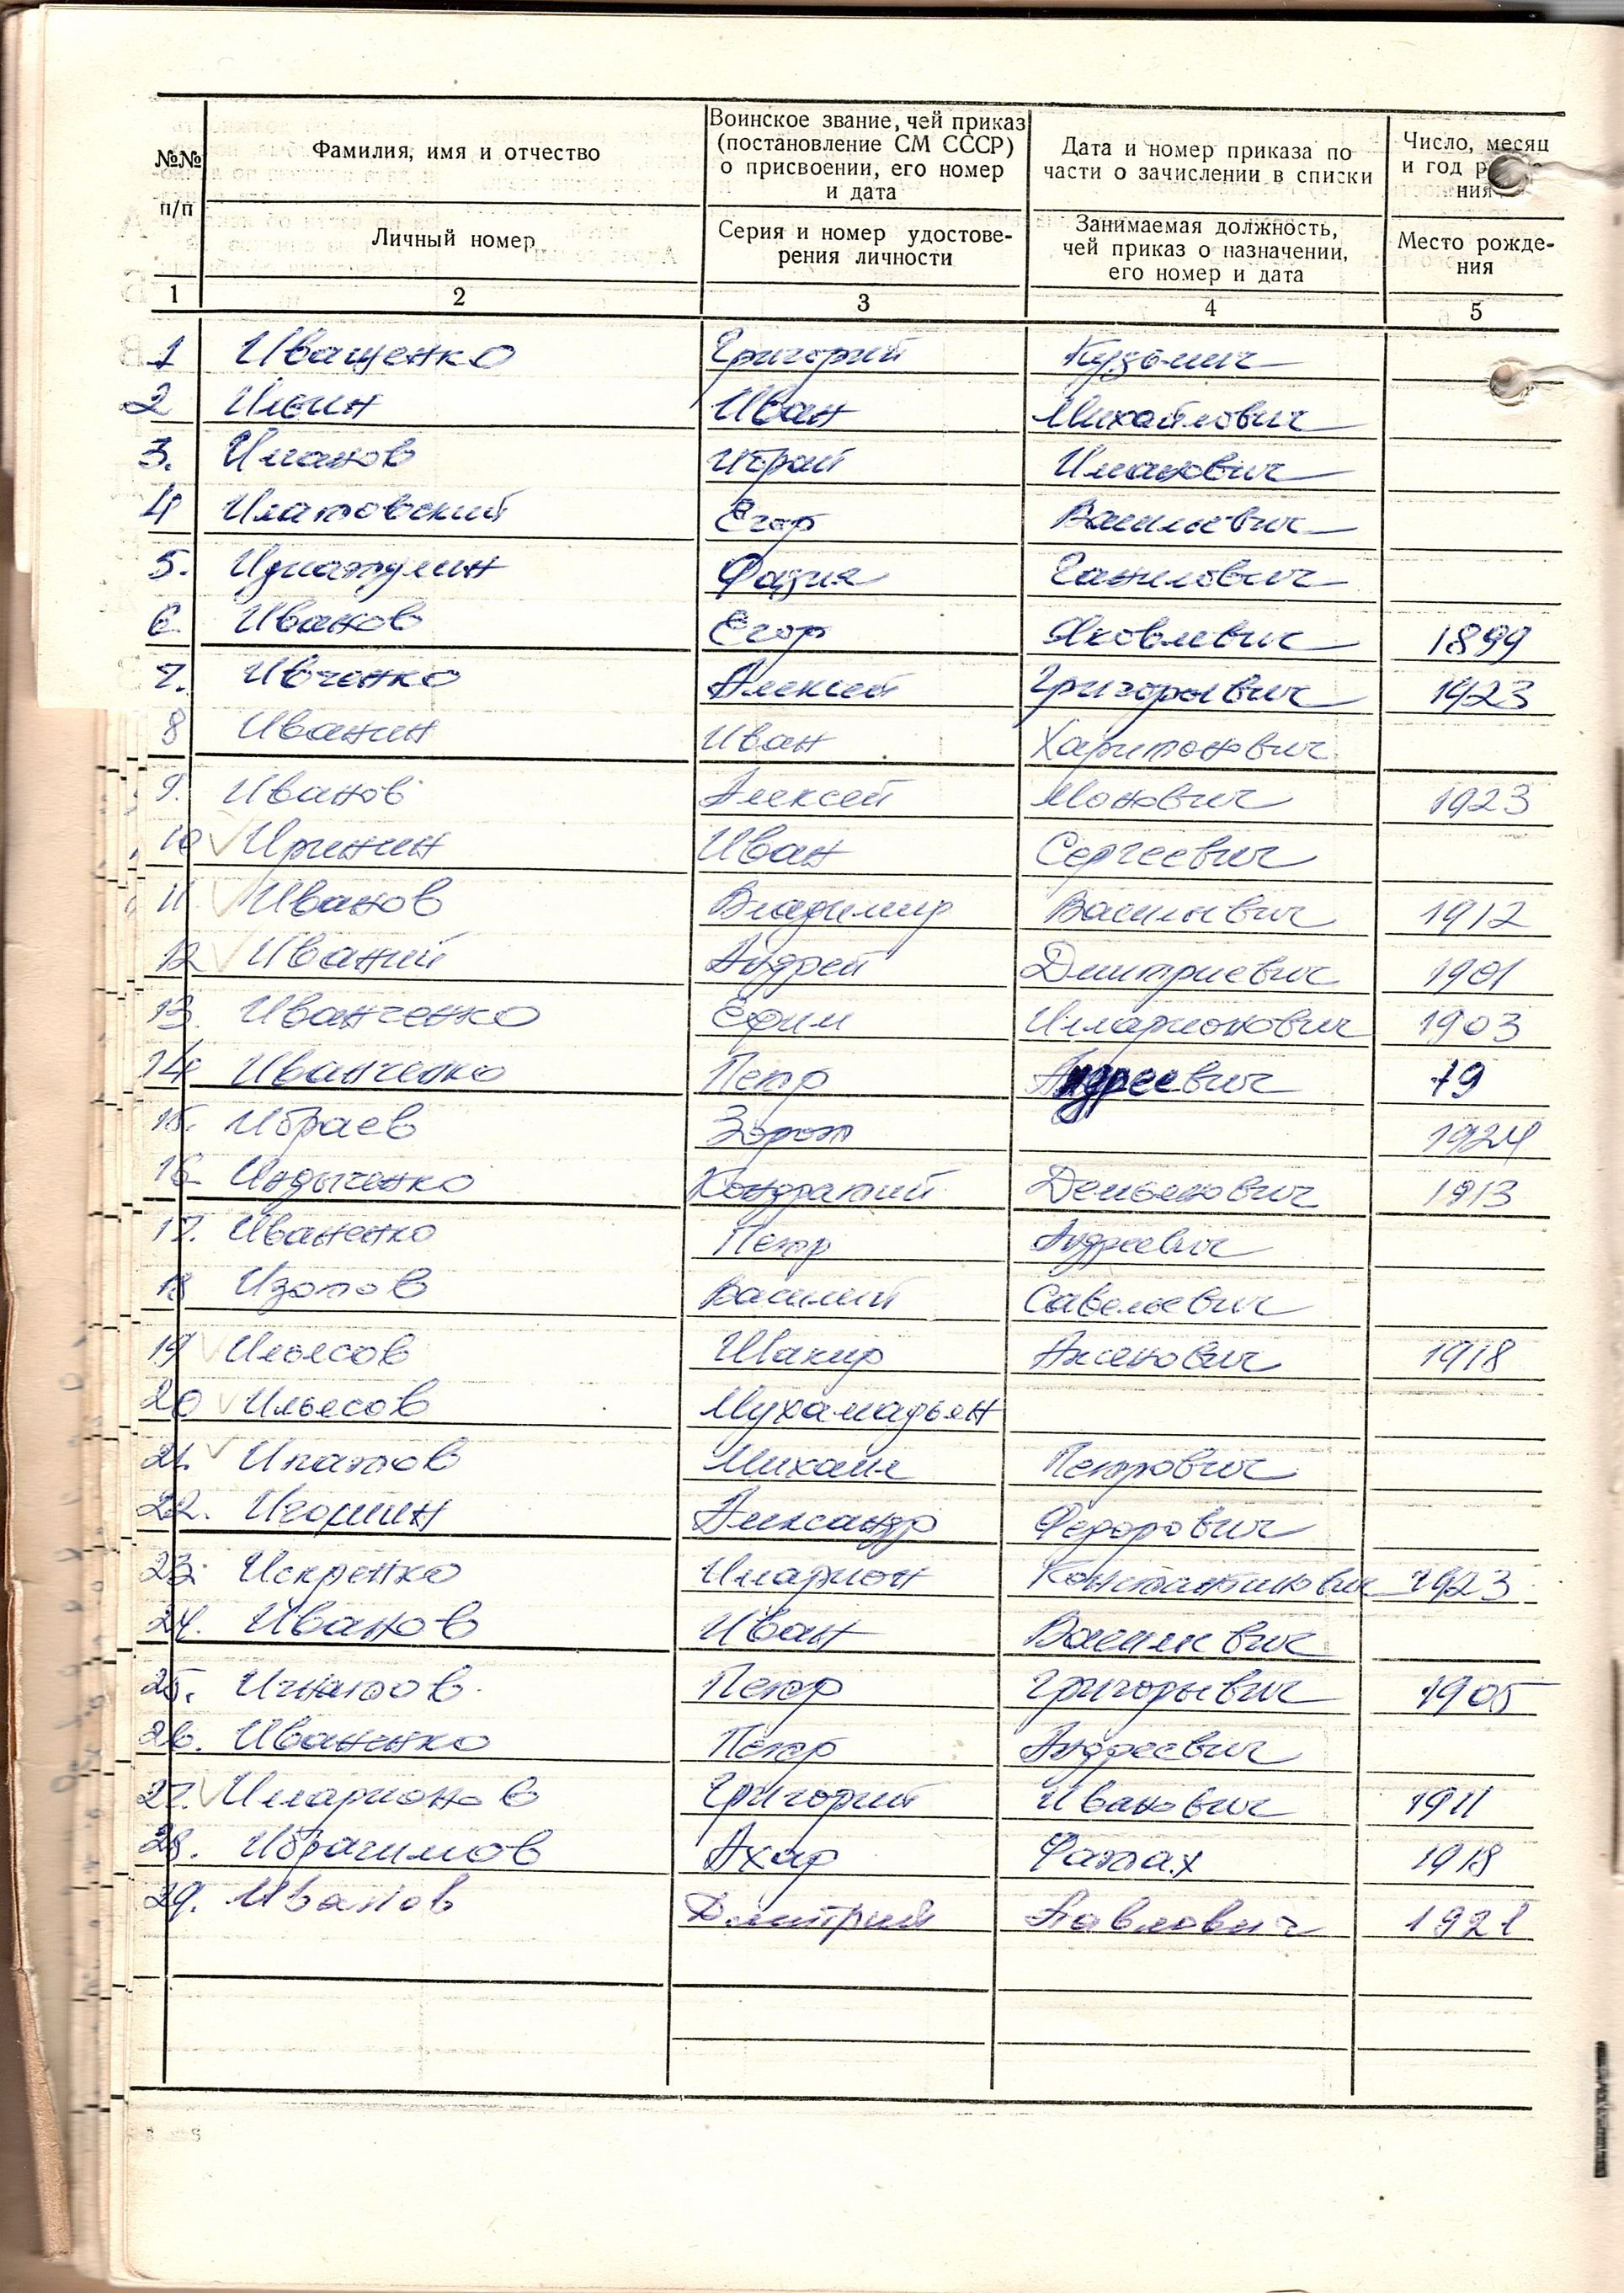 №№ п/п
Фамилия, имя и отчество
Личный номер
Воинское звание, чей приказ
(постановление СМ СССР)
о присвоении, его номер
и дата
Серия и номер удостове-
рения личности
Дата и номер приказа по
части о зачислении в списки
Занимаемая должность,
чей приказ о назначении,
его номер и дата
Число, месяц
и год
ния
Место рожде-
ния
1 2 3 4 5
1 Иващенко Григорий Кузьмич
2 Ильин Иван Михайлович
3. Иманов Ибрай Иманович
4 Егор Васильевич
5. Ганилович
6. Иванов Егор Яковлевич 1899
7. Ивченко Алексей Григорьевич 1923
8 Иванин Иван Харитонович
9. Иванов Алексей Монович 1923
10 Иринин Иван Сергеевич
11 Иванов Владимир Васильевич 1912
12 Иваний Андрей Дмитриевич 1901
13. Иванченко Ефим Илларионович 1903
14. Иванченко Петр Андреевич 19
15. Ибраев 1924
16. Индыченко Кондратий Демьянович 1913
17. Иваненко Петр Андреевич
18 Изотов Василий Савельевич
19 Ильясов Шакир 1918
20 Ильясов Мухамадьян
21. Ипатов Михаил Петрович
22. Игошин Александр Федорович
23. Искренко Иларион Константинович 1923
24. Иванов Иван Василевич
25. Игнатов. Петр Григорьевич 1905
26. Иваненко Петр Андреевич
27. Илларионов Григорий Иванович 1911
28. Ибрагимов Ахар Фаттах 1918
29. Иванов Дмитрий Павлович 1921